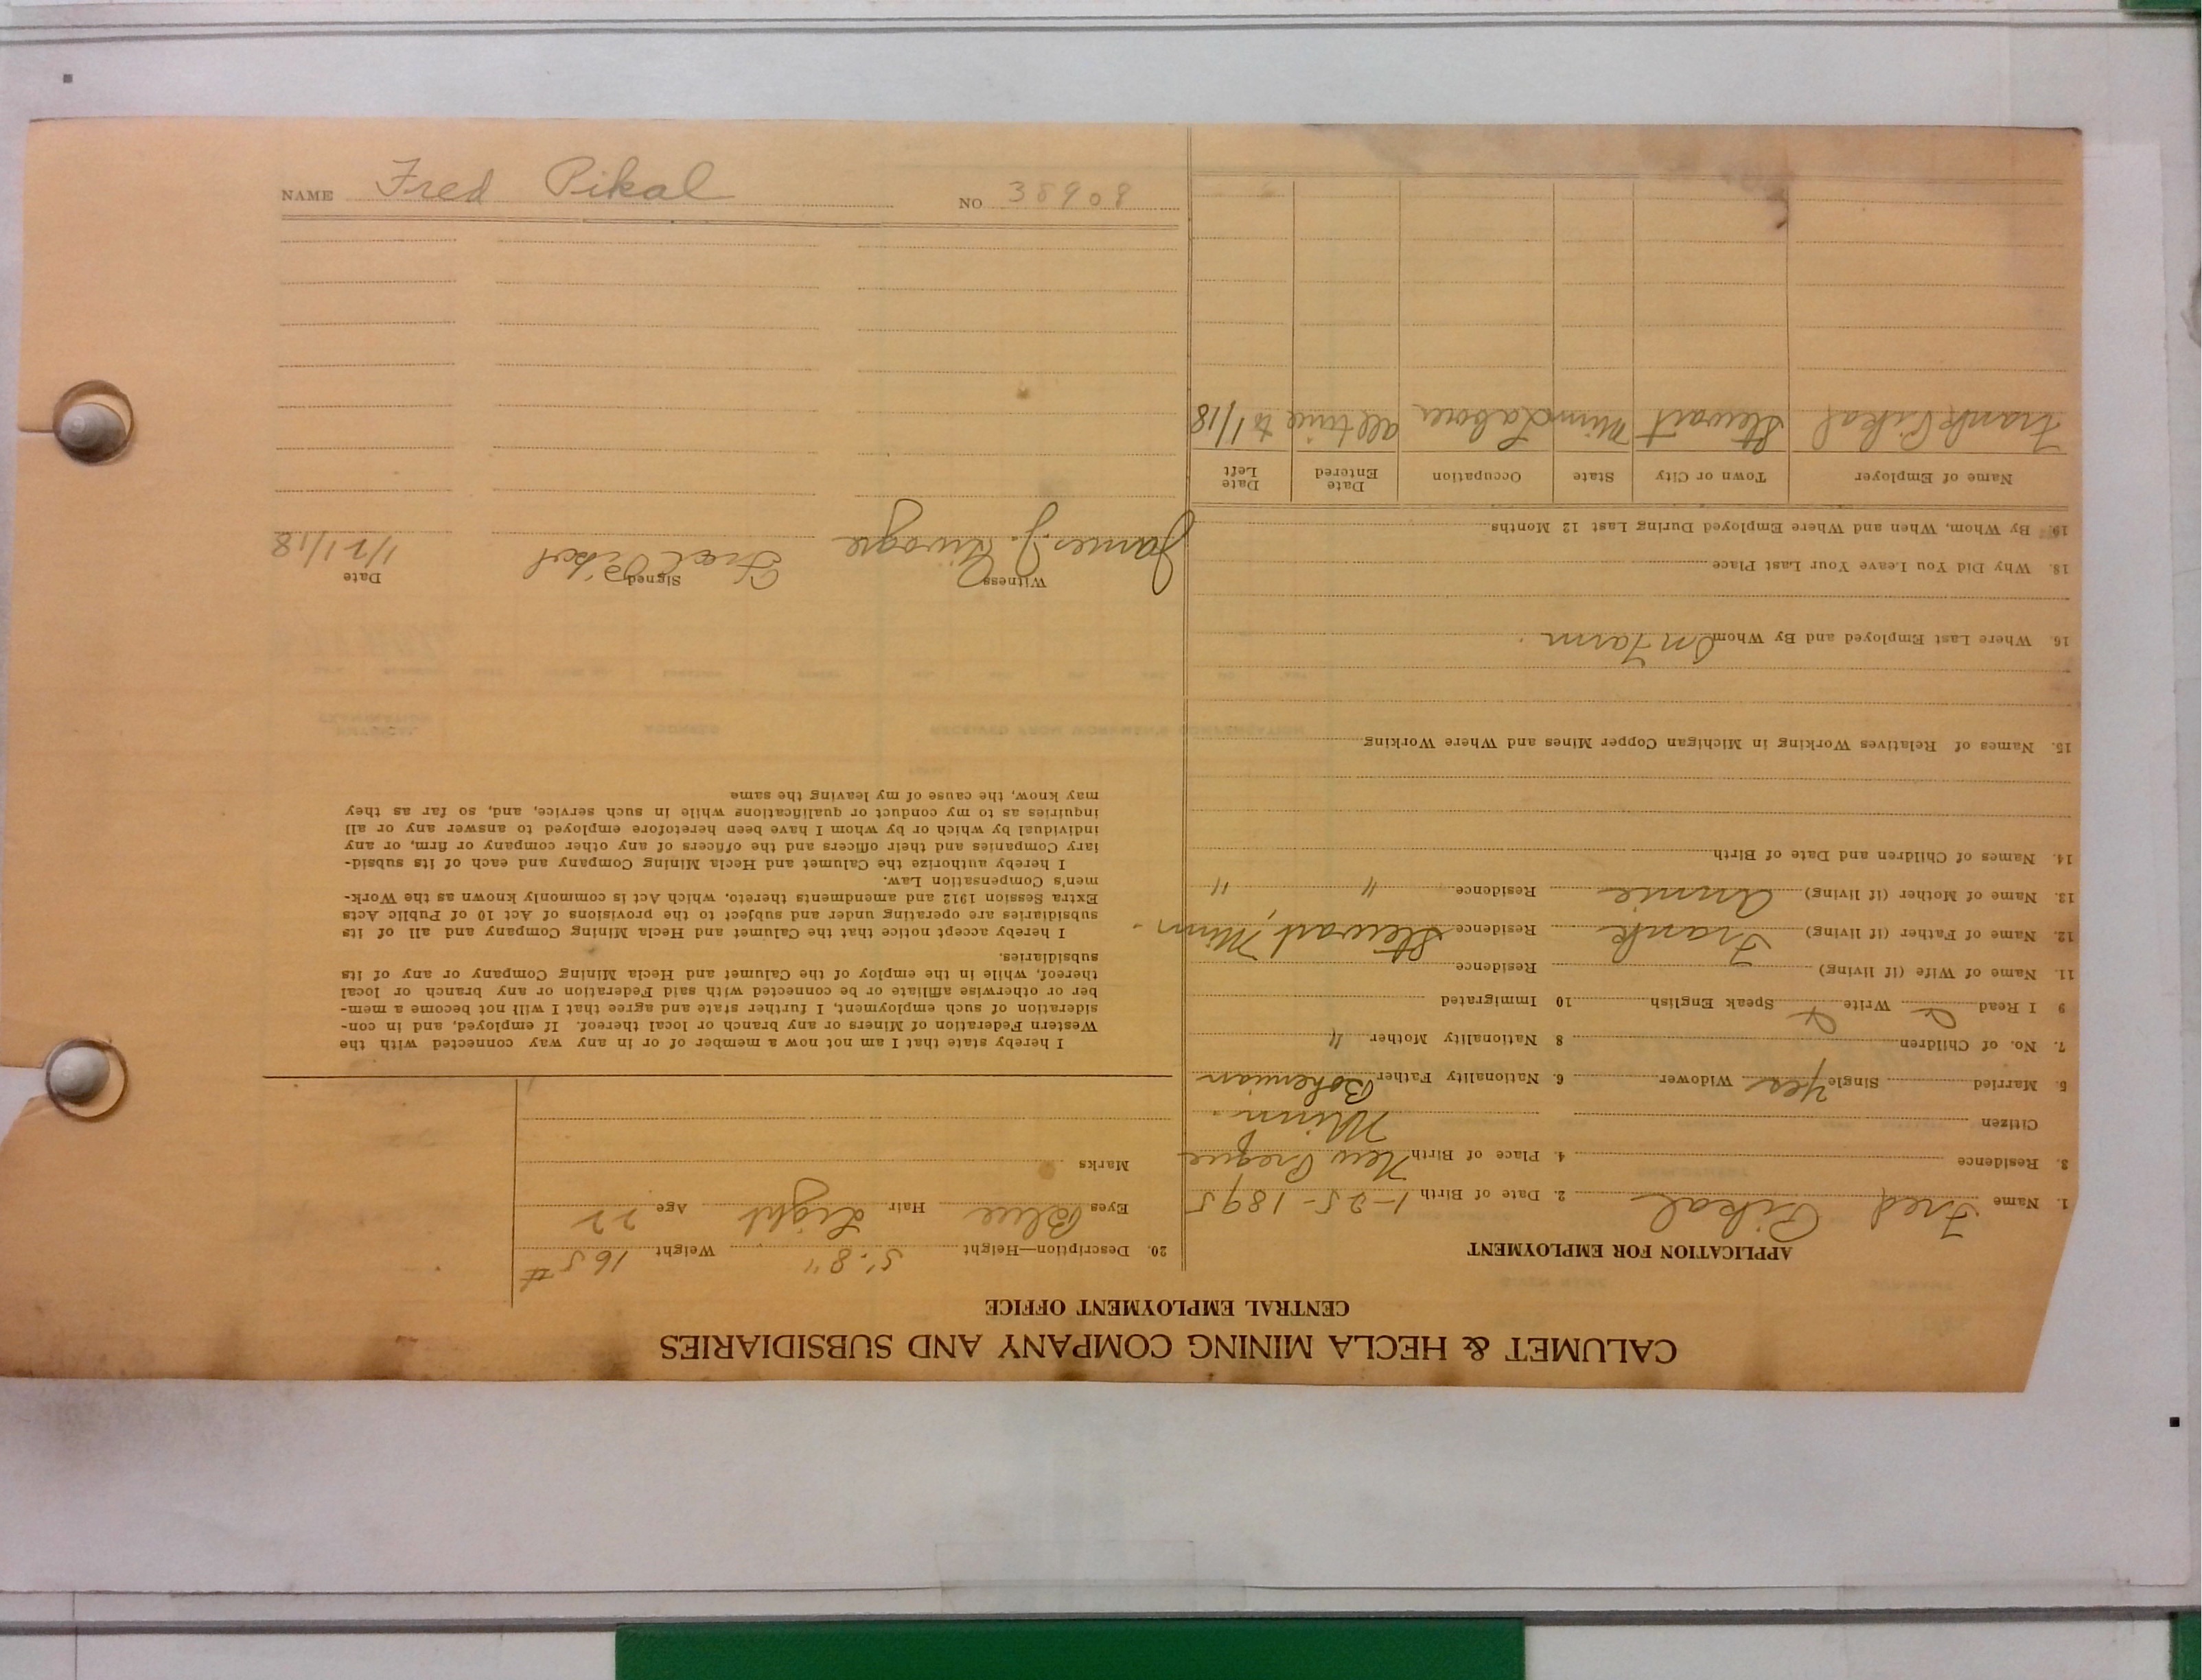 CALUMET & HECLA MINING COMPANY AND SUBSIDIARIES
CENTRAL EMPLOYMENT OFFICE
APPLICATION FOR EMPLOYMENT
1. Name Fred Pikal 2. Date of Birth 1-25-1895
3. Residence 4. Place of Birth New Prague
Citizen Minn.
5. Married Single Yes Widower 6. Nationality Father Bohemian
7. No. of Children 8 Nationality Mother "
9 I Read Write Speak English 10 Immigrated
11. Name of Wife (if living) Residence
12. Name of Father (if living) Frank Residence Stewart, Minn.
13. Name of Mother (if living) Annie Residence " "
14. Names of Children and Date of Birth
15. Names of Relatives Working in Michigan Copper Mines and Where Working
16. Where Last Employed and By Whom On Farm
18. Why Did You Leave Your Last Place
19. By Whom, When and Where Employed During Last 12 Months
Name of Employer Town or City State Occupation Date Entered Date Left
Frank Pikal Stewart Minn Labor all time to 1/18
20. Description—Height 5'8" Weight 165#
Eyes Blue Hair Light Age 22
Marks
I hereby state that I am not now a member of or in any way connected with the
Western Federation of Miners or any branch or local thereof. If employed, and in con-
sideration of such employment, I further state and agree that I will not become a mem-
ber or otherwise affiliate or be connected with said Federation or any branch or local
thereof, while in the employ of the Calumet and Hecla Mining Company or any of its
subsidiaries.
I hereby accept notice that the Calumet and Hecla Mining Company and all of its
subsidiaries are operating under and subject to the provisions of Act 10 of Public Acts
Extra Session 1912 and amendments thereto, which Act is commonly known as the Work-
men's Compensation Law.
I hereby authorize the Calumet and Hecla Mining Company and each of its subsid-
iary Companies and their officers and the officers of any other company or firm, or any
individual by which or by whom I have been heretofore employed to answer any or all
inquiries as to my conduct or qualifications while in such service, and, so far as they
may know, the cause of my leaving the same
Witness Signed Date
James J. Fred Pikal 1/21/18
NAME Fred Pikal NO 38908